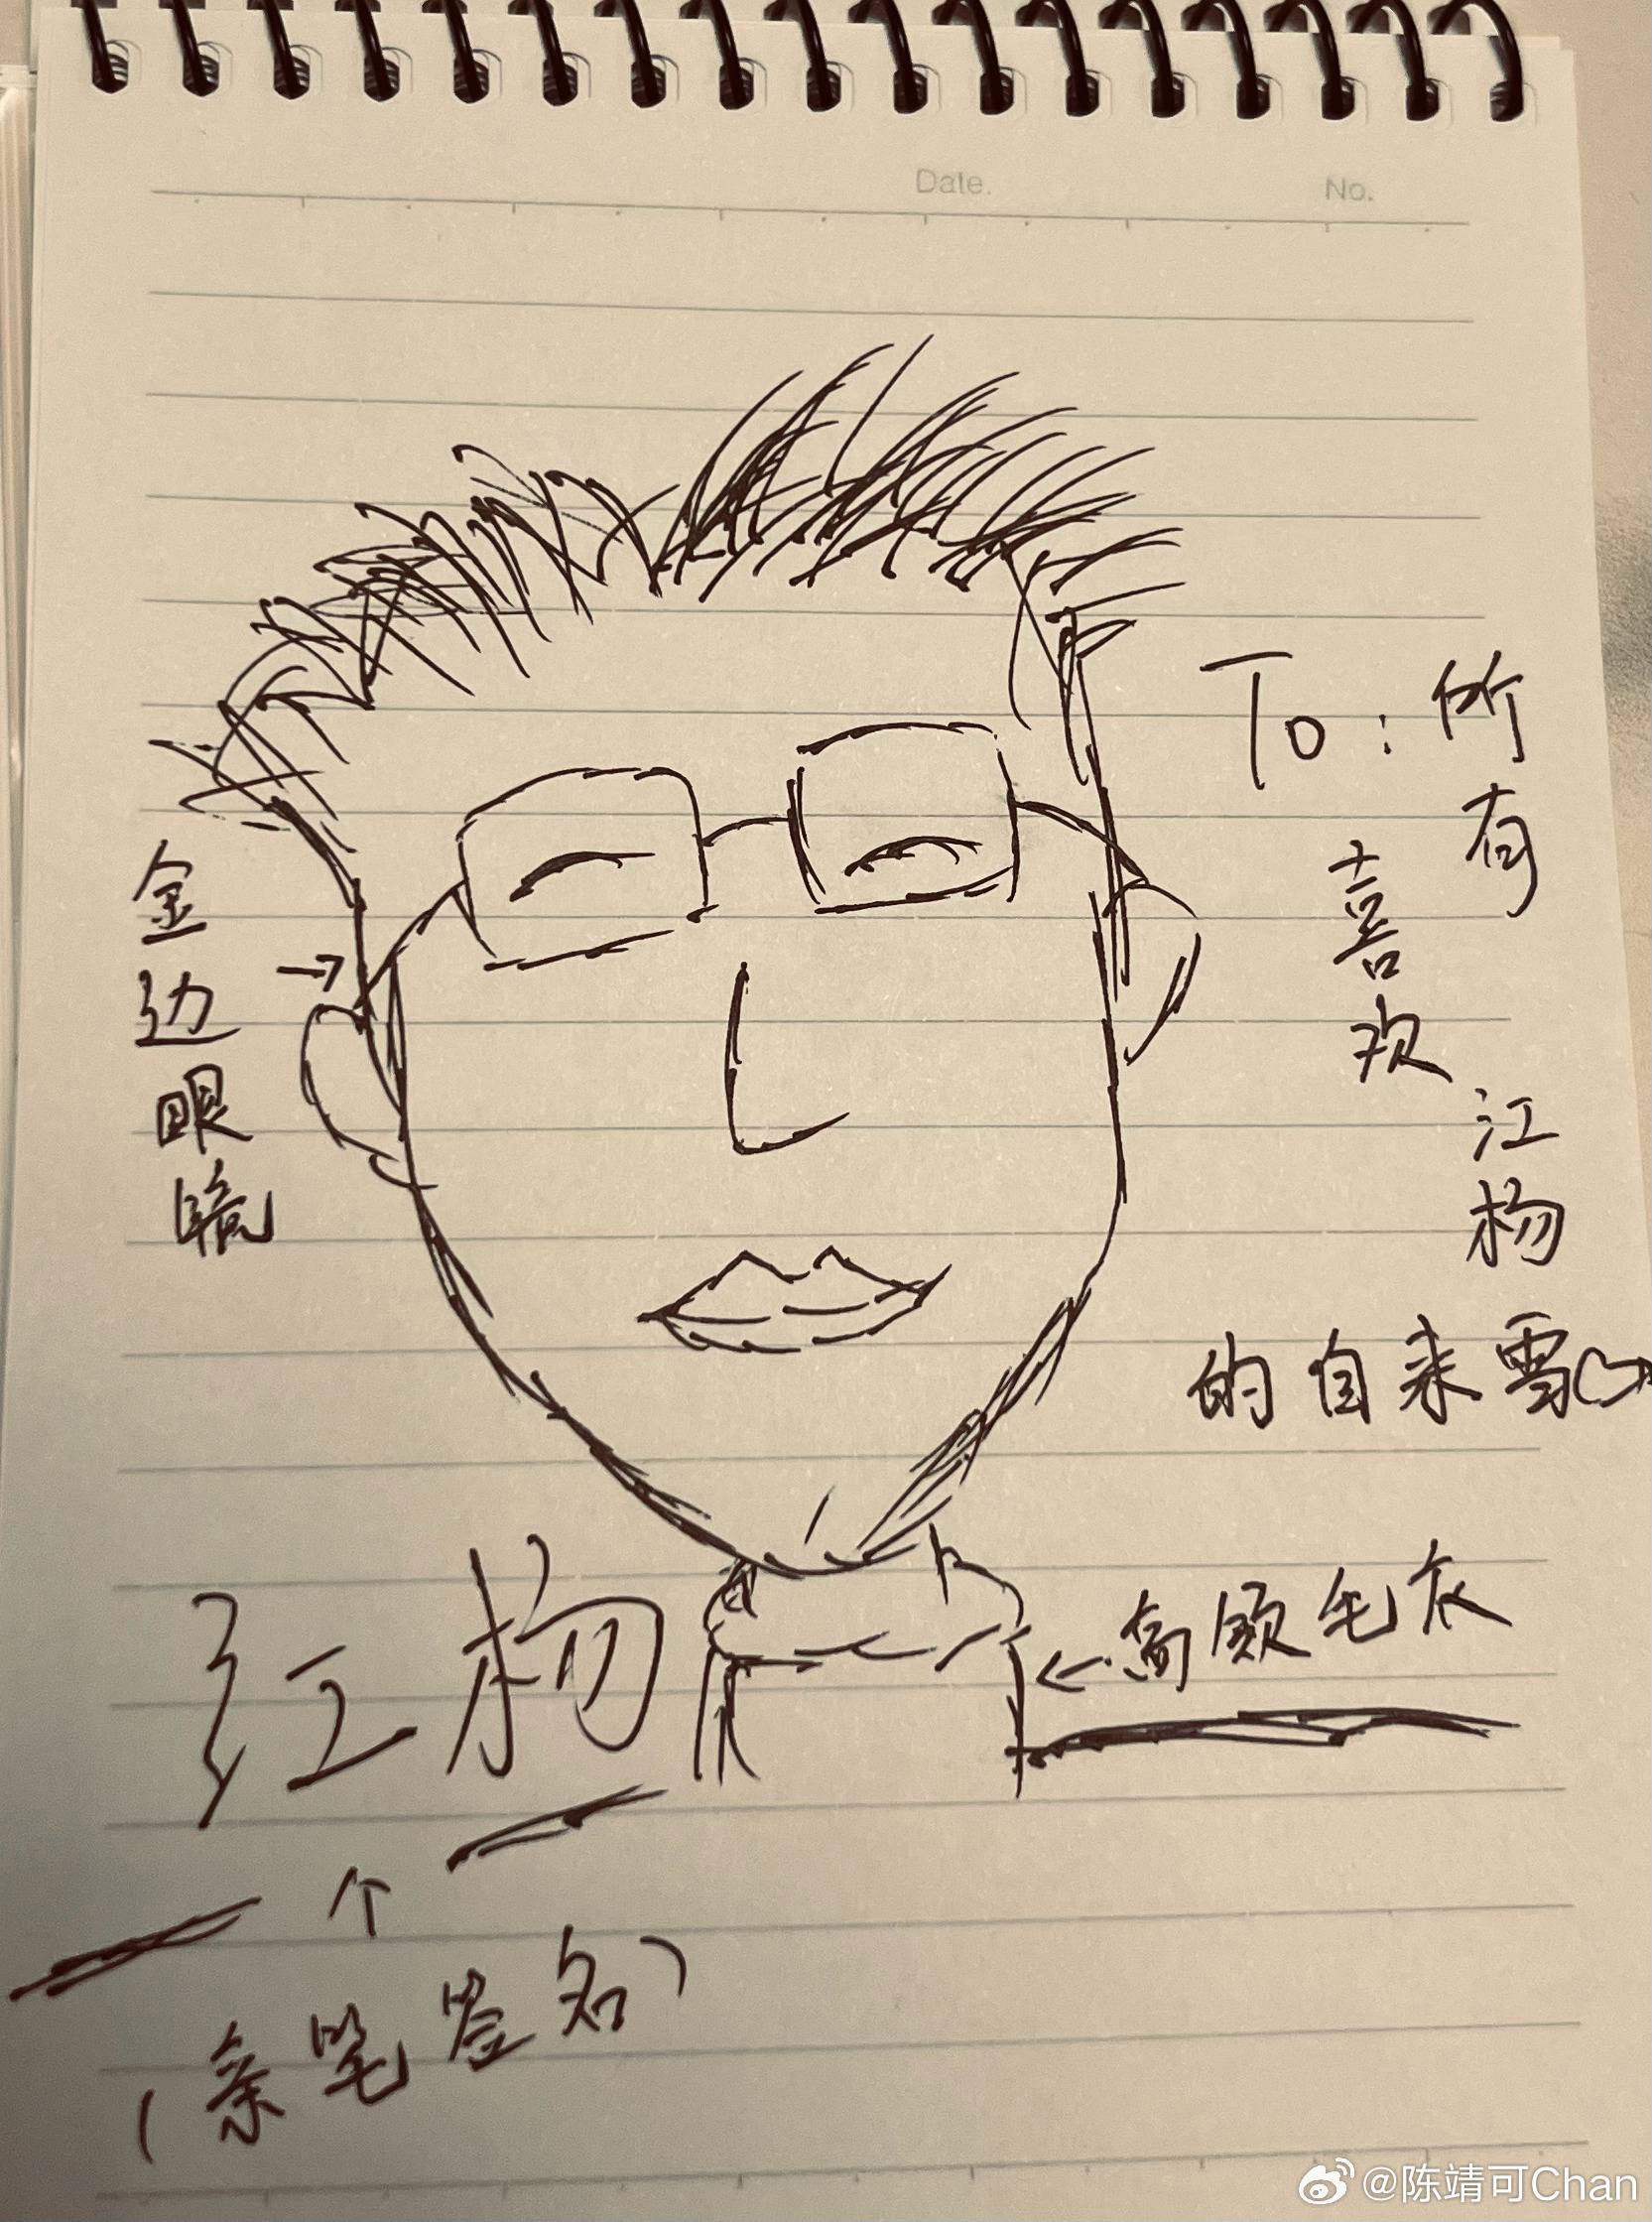 Date.
No.
To:所有
喜欢
江杨
的自来雪
金边眼镜
高领毛衣
江杨
个
(亲笔签名)
@陈靖可Chan